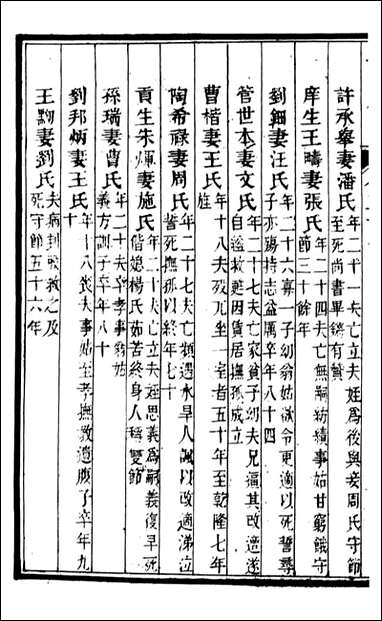 許承舉妻潘氏年二十一夫亡立夫姪為後與妾周氏守節
至死尚書畢鏘有贊
庠生王疇妻張氏年二十四夫亡無嗣紡績事姑甘窮餓守
節三十餘年
劉鈿妻汪氏年二十六寡一子幼翁姑欲令更適以死誓尋
子亦殤持志益厲卒年八十四
管世本妻文氏年二十七夫亡家貧子幼夫兄逼其改適遂
自逸救甦因賃居撫孤成立
曹楷妻王氏年十八夫歿兀坐一室者五十年至乾隆七年
旌
陶希祿妻周氏年二十七夫亡頻遇水旱人諷以改適涕泣
誓死撫孤以終年七十
貢生朱煇妻施氏年二十夫亡立夫姪思義為嗣義復早死
偕媳楊氏茹苦終身人稱雙節
孫瑞妻曹氏年二十夫卒孝事翁姑
義方訓子
劉邦炳妻王氏年十八喪夫事姑至孝撫教遺腹子卒年九
十
王夠妻劉氏夫病刲股救之及
死守節五十六年